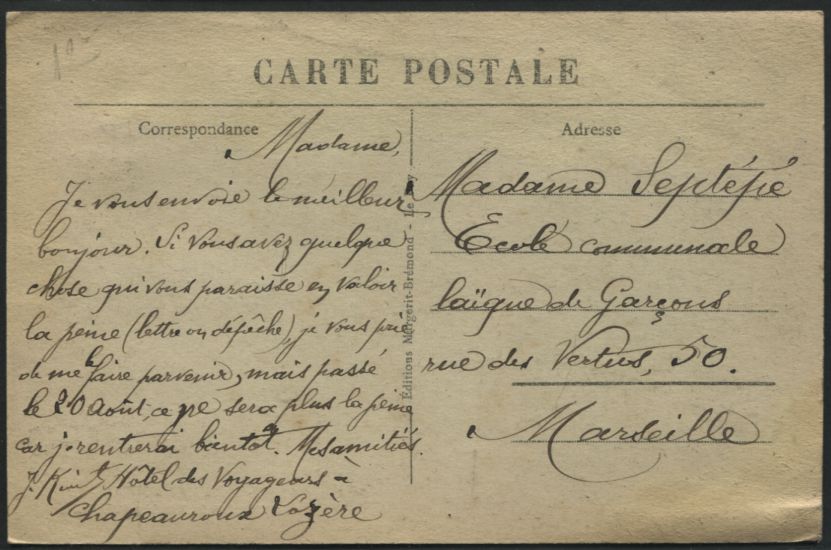 CARTE POSTALE
Correspondance
Madame,
Je vous envoie le meilleur
bonjour. Si vous avez quelque
chose qui vous paraisse en valoir
la peine (lettre ou dépêche), je vous prie
de me le faire parvenir, mais passé
le 20 Août, ce ne sera plus la peine
car je rentrerai bientôt. Mes amitiés.
J. Hôtel des Voyageurs à
Chapeauroux Lozère
Éditions Margerit-Brémond - Le Puy
Adresse
Madame Septépié
Ecole communale
laïque de Garçons
rue des Vertus, 50.
Marseille